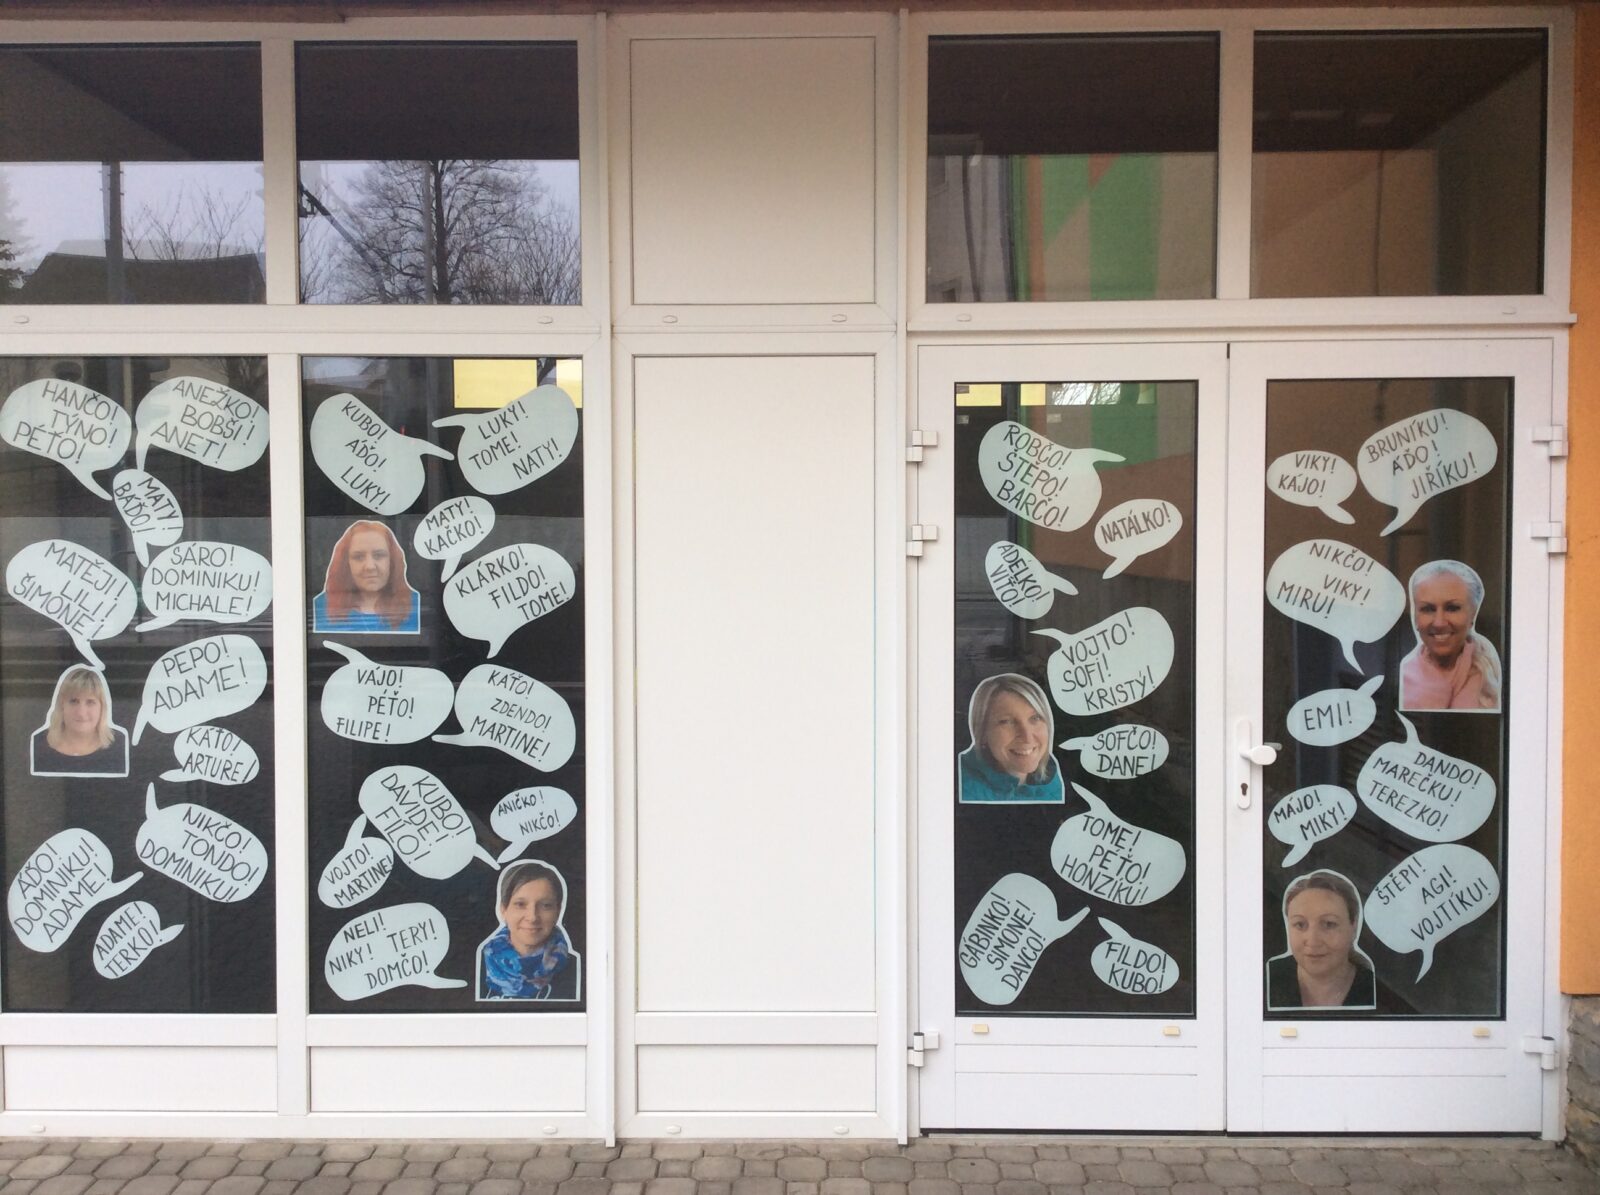 HANČO!
TÝNO!
PÉŤO!
ANEŽKO!
BOBŠI!
ANET!
MATY!
BÁĎO!
MATĚJI!
LILI!
ŠIMONE!
SÁRO!
DOMINIKU!
MICHALE!
PEPO!
ADAME!
KÁŤO!
ARTURE!
NIKČO!
TONDO!
DOMINIKU!
ÁĎO!
DOMINIKU!
ADAME!
ADAME!
TERKO!
KUBO!
ÁĎO!
LUKY!
LUKY!
TOME!
NATY!
MATY!
KAČKO!
KLÁRKO!
FILDO!
TOME!
VÁJO!
PÉŤO!
FILIPE!
KÁŤO!
ZDENDO!
MARTINE!
KUBO!
DAVIDE!
FÍLO!
ANIČKO!
NIKČO!
VOJTO!
MARTINE!
NELI!
NIKY! TERY!
DOMČO!
ROBČO!
ŠTĚPO!
BARČO!
NATÁLKO!
ADÉLKO!
VÍŤO!
VOJTO!
SOFI!
KRISTÝ!
SOFČO!
DANE!
TOME!
PÉŤO!
HONZÍKU!
GÁBINKO!
SIMONE!
DAVČO!
FILDO!
KUBO!
VIKY!
KÁJO!
BRUNÍKU!
ÁĎO!
JIŘÍKU!
NIKČO!
VIKY!
MIRU!
EMI!
DANDO!
MAREČKU!
TEREZKO!
MÁJO!
MIKY!
ŠTĚPI!
AGI!
VOJTÍKU!